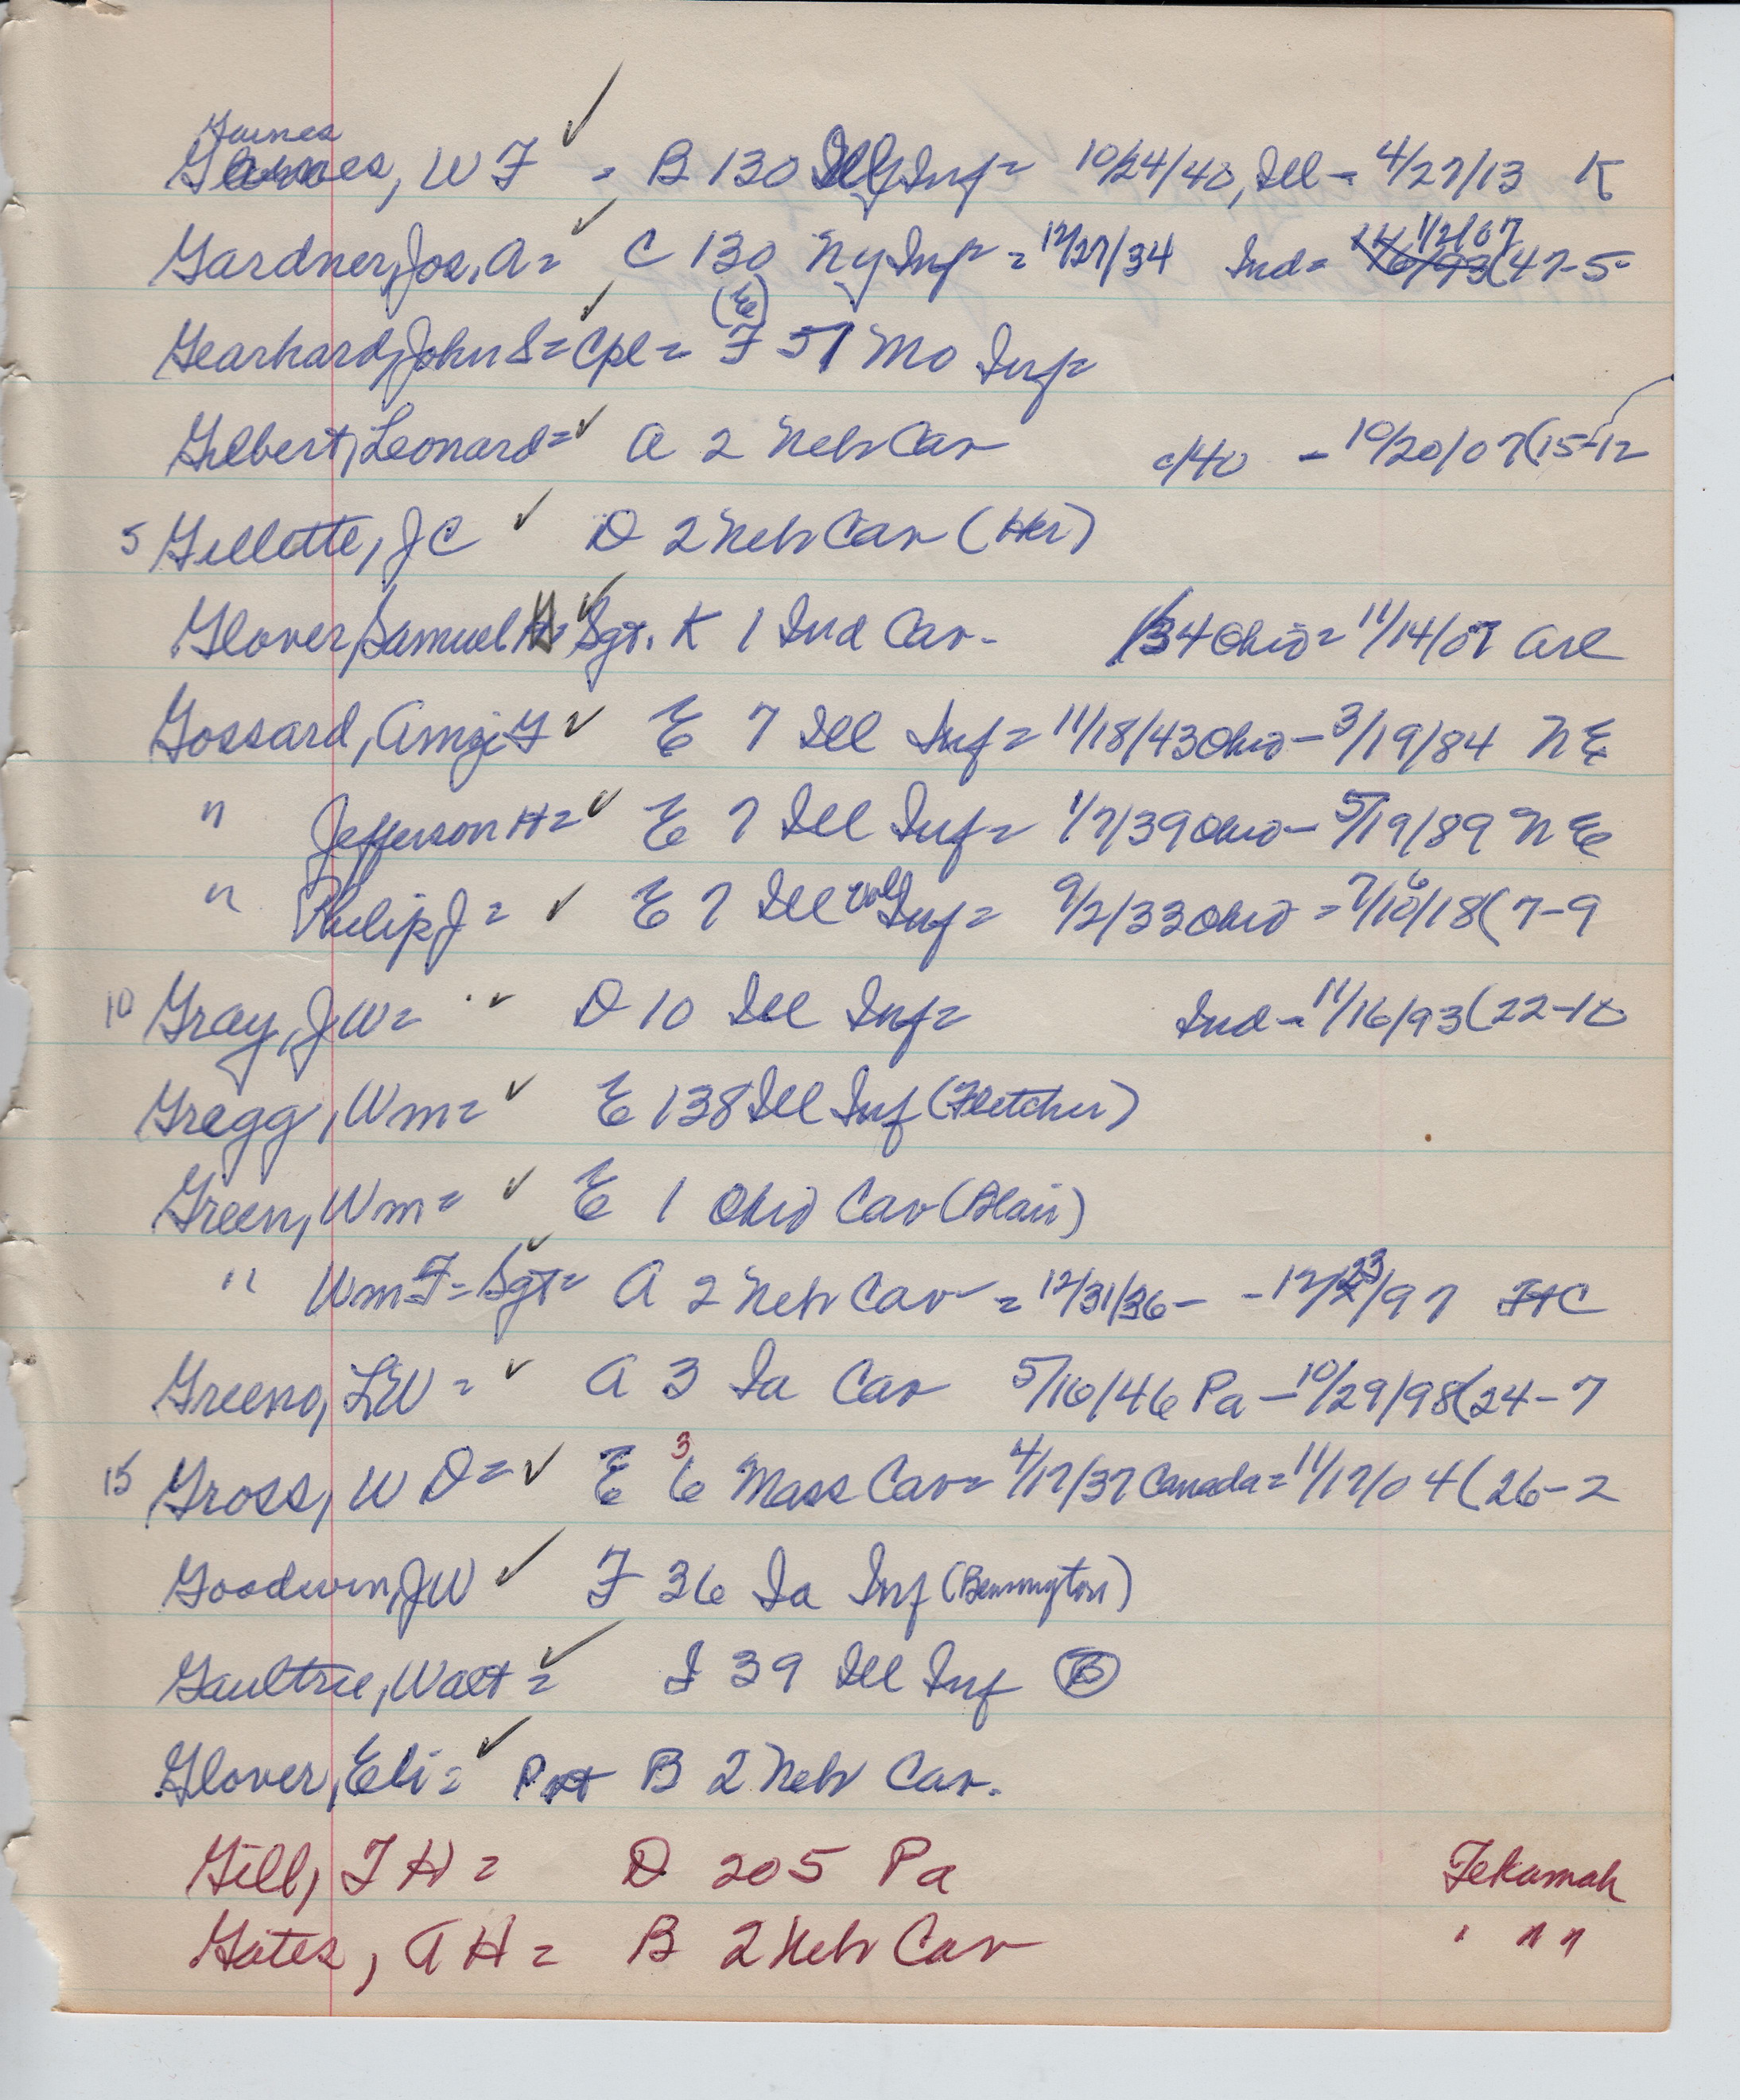 Gaines
Gaines, W F ✓ = B 130 Ill Inf = 10/24/40, Ill - 4/27/13 K
Gardner, Jos, A = ✓ C 130 Ny Inf = 12/27/34 Ind = 1/2/07 (47-5-
(E)
Gearhard, John S = Cpl = F 51 Mo Inf =
Gilbert, Leonard = ✓ A 2 Neb Cav c/40 - 10/20/07 (15-12
5 Gillette, J C ✓ D 2 Neb Cav (Her)
Glover, Samuel H = Sgt. K 1 Ind Cav - 34 Ohio = 11/14/07 Arl
Gossard, Amzi F ✓ E 7 Ill Inf = 11/18/43 Ohio - 3/19/84 N E
" Jefferson H = ✓ E 7 Ill Inf = 1/7/39 Ohio - 5/19/89 N E
" Philip J = ✓ E 7 Ill Vol Inf = 9/2/33 Ohio = 7/10/18 (7-9
10 Gray, J W = ✓ D 10 Ill Inf = Ind - 11/16/93 (22-10
Gregg, Wm = ✓ E 138 Ill Inf (Fletcher)
Green, Wm = ✓ E 1 Ohio Cav (Blair)
" Wm F = Sgt = A 2 Neb Cav = 12/31/36 - - 12/23/97 FHC
Greeno, L W = ✓ A 3 Ia Cav 5/16/46 Pa - 10/29/98 (24-7
3
15 Gross, W D = ✓ E 6 Mass Cav = 4/17/37 Canada = 11/17/04 (26-2
Goodwin, J W ✓ F 36 Ia Inf (Bennington)
Gaultrie, Walt = ✓ I 39 Ill Inf (B)
Glover, Eli = ✓ Pvt B 2 Neb Cav.
Gill, T H = D 205 Pa Tekamah
Gates, A H = B 2 Neb Cav " " "